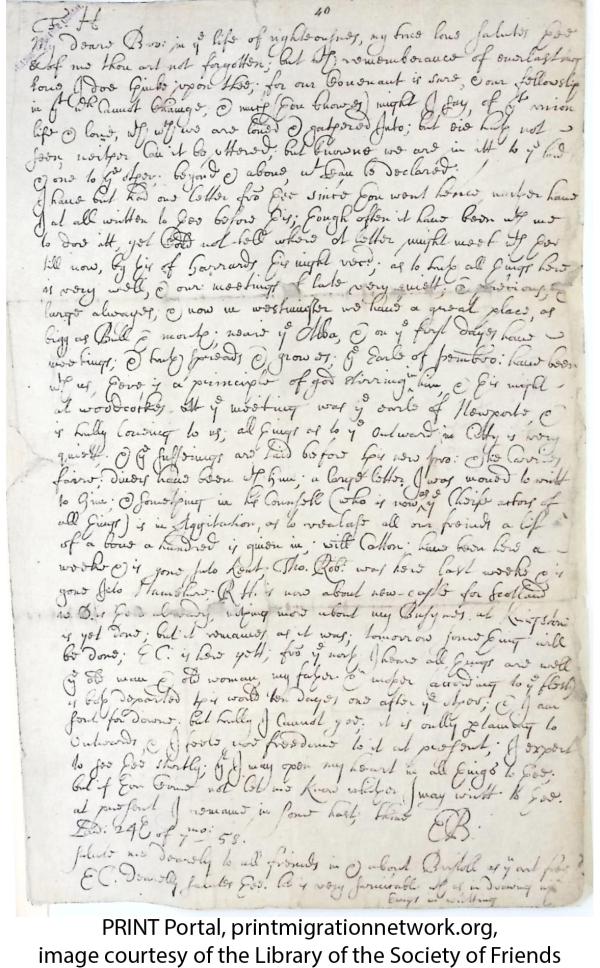 40
Fr: H
My deare Bro: in ye life of righteousnes, my true love salutes thee
& of me thou art not forgotten; but wth rememberance of everlasting
love I doe thinke upon thee; for our Covenant is sure, & our fellowship
in yt wch Cannot Change, & much (thou knowes) might I say, of yt union
life & love, wth wch we are loved & gathered Into; but eie hath not
seen neither Can it be uttered, but knowne we are in itt to ye lord
& one to ye other; beyond & above, wt Can be declared;
I have but had one letter fro thee since thou went hence, neither have
I at all written to thee before this; though often it have been wth me
to doe itt, yet Could not tell where A letter might meet wth thee
till now, by this of Harrards this night rece; as to truth all things here
is very well, & our meetings of late very quiett; & precious, &
large alwayes, & now in westminster we have a great place, as
bigg as Bull & mouth; neare ye Abba, & on ye first dayes have
meetings; & truth spreads & growes; ye Earle of Pembro: have been
wth us, there is a principle of god stirring in him & this night
at woodcockes att ye meeting was ye earle of Newporte, &
is truly Loveing to us; all things as to ye Outward in Citty is very
quiett; & ye sufferings are laid before this new pro: & he Carries
faire; divers have been wth him; a large letter I was moved to writt
to him; & something in his Counsell (who is now as ye Cheife actors of
all things) is in Aggitation, as to realease all our freinds a list
of a bove a hundred is given in; will Catton: have been here a
weeke & is gone Into Kent. Tho. Rob: was here last weeke & is
gone Into Hampshire; R H. is now about new-castle for Scotland
nothing more about my Busynes at Kingston
is yet done; but it remaines as it was; tomorrow something will
be done; E C. is here yett; fro ye north I heare all things are well
ye old man & old woman, my father & mother according to ye flesh
is both departed this world ten dayes one after ye other; & I am
sent for downe. but truly I Cannot goe; it is only pertaining to
Outwards, & I feele noe freedome to it at present; I expect
to see thee shortly; yt I may open my heart in all things to thee.
but if thou Come not let me know whither I may writt to thee.
at present I remaine in some hast; thine
EB.
Lon: 24th of 7 mo: 58.
salute me dearely to all friends in & about Bristoll as yu art free
E C. dearely salutes thee. he is very serviceable wth us in drawing up
things in writting
PRINT Portal, printmigrationnetwork.org,
image courtesy of the Library of the Society of Friends